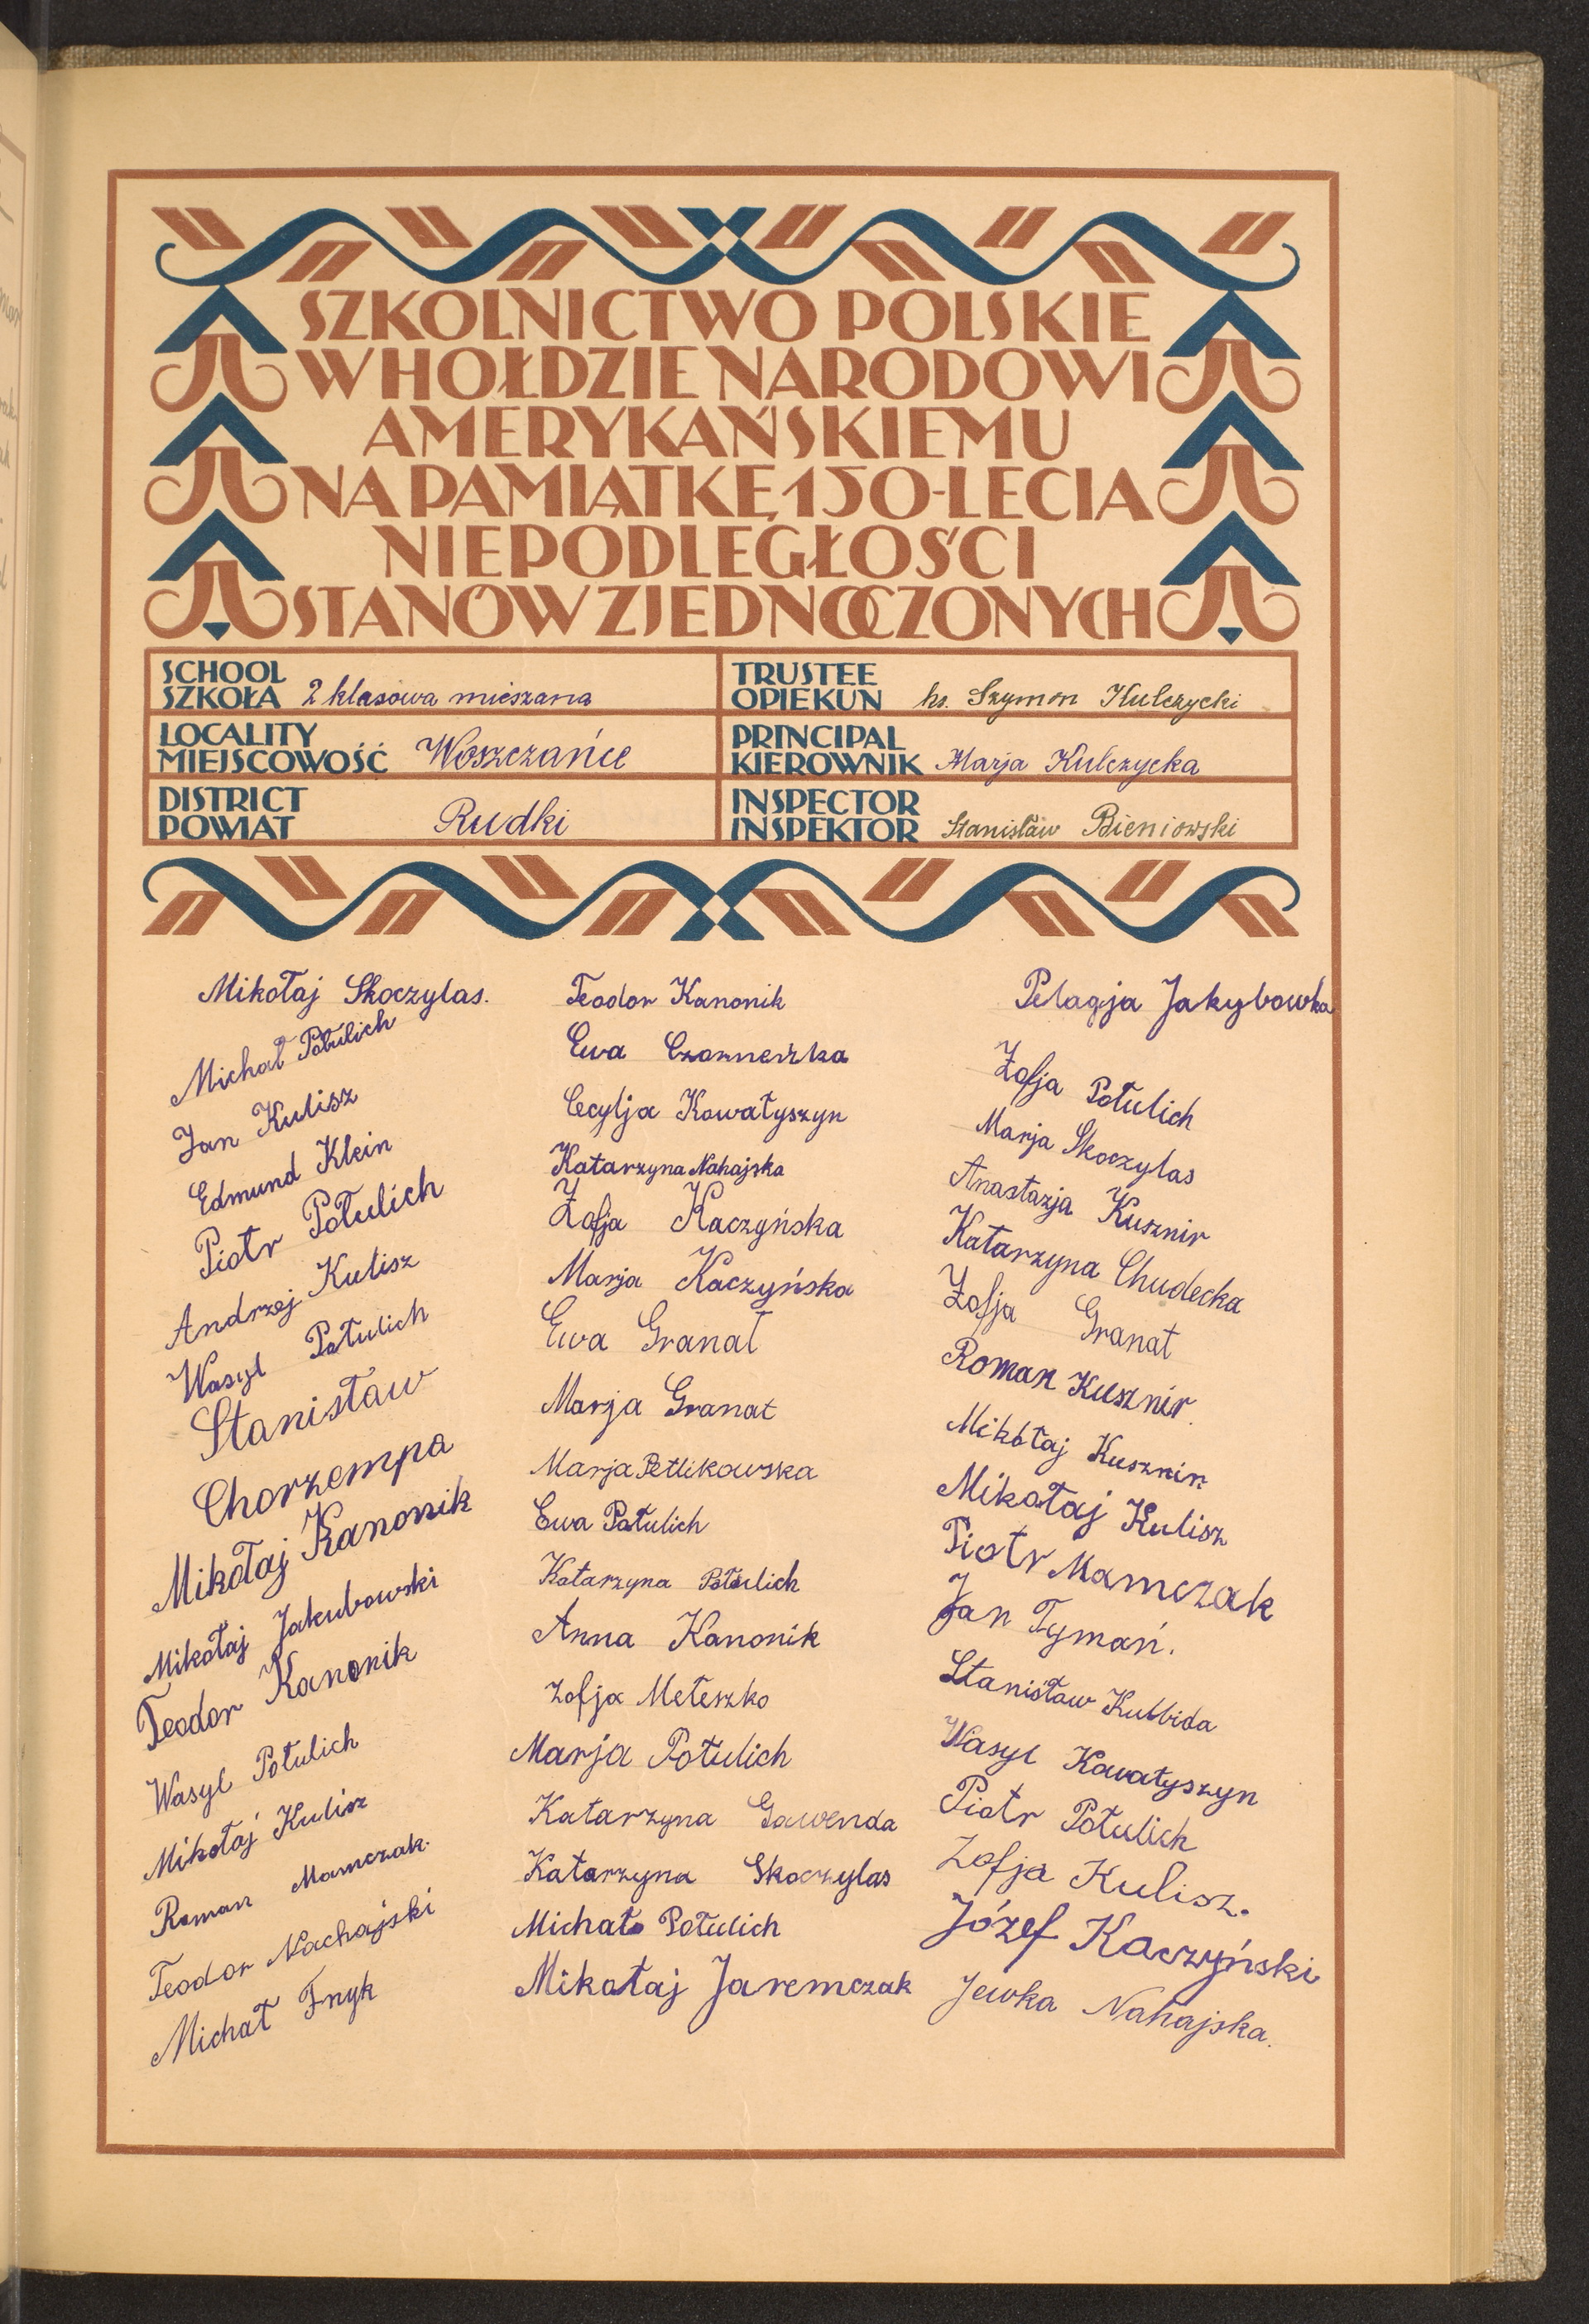 SZKOLNICTWO POLSKIE
W HOŁDZIE NARODOWI
AMERYKAŃSKIEMU
NA PAMIĄTKĘ 150-LECIA
NIEPODLEGŁOŚCI
STANÓW ZJEDNOCZONYCH
SCHOOL
SZKOŁA 2 klasowa mieszana
LOCALITY
MIEJSCOWOŚĆ Woszczańce
DISTRICT
POWIAT Rudki
TRUSTEE
OPIEKUN ks. Szymon Kulczycki
PRINCIPAL
KIEROWNIK Marja Kulczycka
INSPECTOR
INSPEKTOR Stanisław Bieniowski
Mikołaj Skoczylas.
Michał Potulich
Jan Kulisz
Edmund Klein
Piotr Potulich
Andrzej Kulisz
Wasyl Potulich
Stanisław
Chorzempa
Mikołaj Kanonik
Mikołaj Jakubowski
Teodor Kanonik
Wasyl Potulich
Mikołaj Kulisz
Roman Mamczak.
Teodor Nachajski
Michał Fnyk
Teodor Kanonik
Ewa
Cecylja Kowałyszyn
Katarzyna Nahajska
Zofja Kaczyńska
Marja Kaczyńska
Ewa Granat
Marja Granat
Marja Petlikowska
Ewa Potulich
Katarzyna Potulich
Anna Kanonik
Zofja Meteszko
Marja Potulich
Katarzyna Gawenda
Katarzyna Skoczylas
Michał Potulich
Mikołaj Jaremczak
Pelagja Jakybowka
Zofja Potulich
Marja Skoczylas
Anastazja Kusznir
Katarzyna Chudecka
Zofja Granat
Roman Kusznir.
Mikołaj Kusznir
Mikołaj Kulisz
Piotr Mamczak
Jan Tymań.
Stanisław Kulbida
Wasyl Kowałyszyn
Piotr Potulich
Zofja Kulisz.
Józef Kaczyński
Jewka Nahajska.